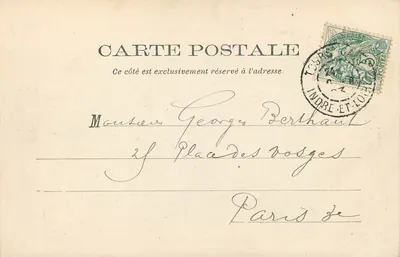 CARTE POSTALE
Ce côté est exclusivement réservé à l'adresse
TOURS
INDRE-ET-LOIRE
Monsieur Georges Berthaut
25 Place des Vosges
Paris 3e